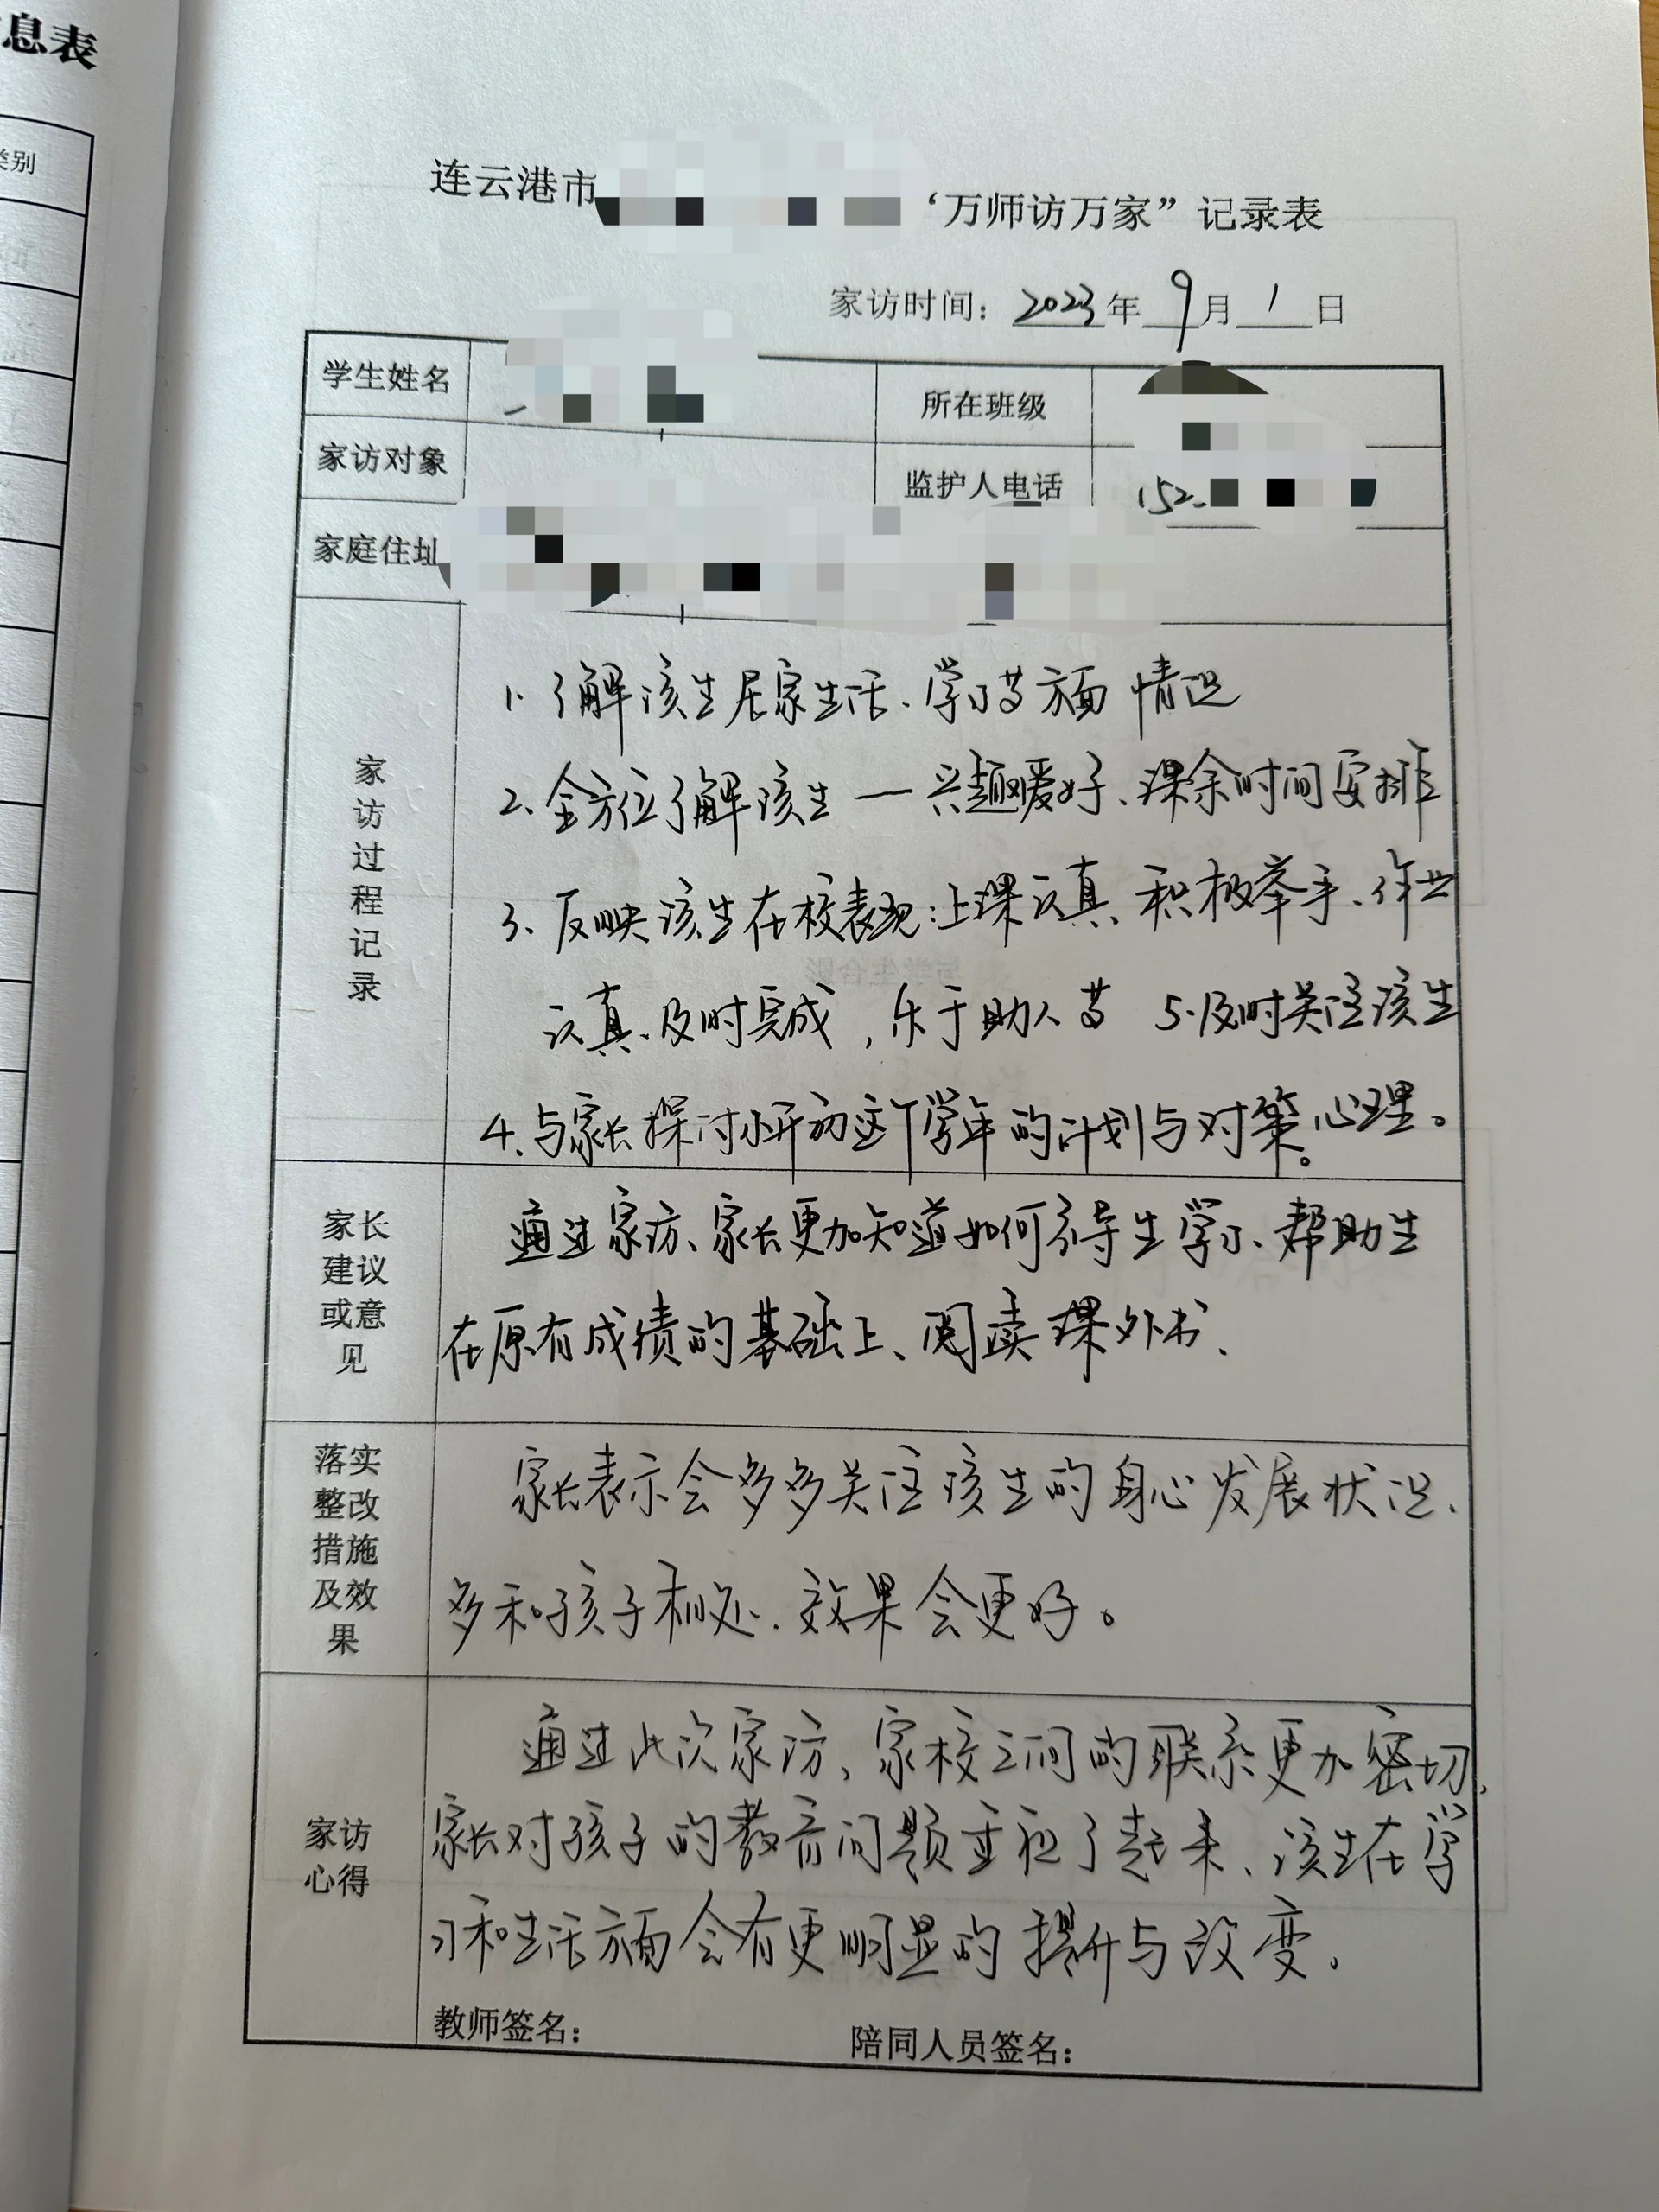 息表
类别
连云港市
‘万师访万家”记录表
家访时间：2023年9月1日
学生姓名
所在班级
家访对象
监护人电话 152
家庭住址
家访过程记录
1.了解该生居家生活、学习等方面情况
2.全方位了解该生—兴趣爱好、课余时间安排
3、反映该生在校表现：上课认真、积极举手、作业
认真、及时完成，乐于助人等 5.及时关注该生
4、与家长探讨小开初这个学年的计划与对策。心理。
家长
建议
或意
见
通过家访、家长更加知道如何待生学习、帮助生
在原有成绩的基础上、阅读课外书、
落实
整改
措施
及效
果
家长表示会多多关注该生的身心发展状况、
多和孩子相处、效果会更好。
家访
心得
通过此次家访、家校之间的联系更加密切、
家长对孩子的教育问题重视了起来、该生在学
习和生活方面会有更明显的提升与改变、
教师签名：
陪同人员签名：